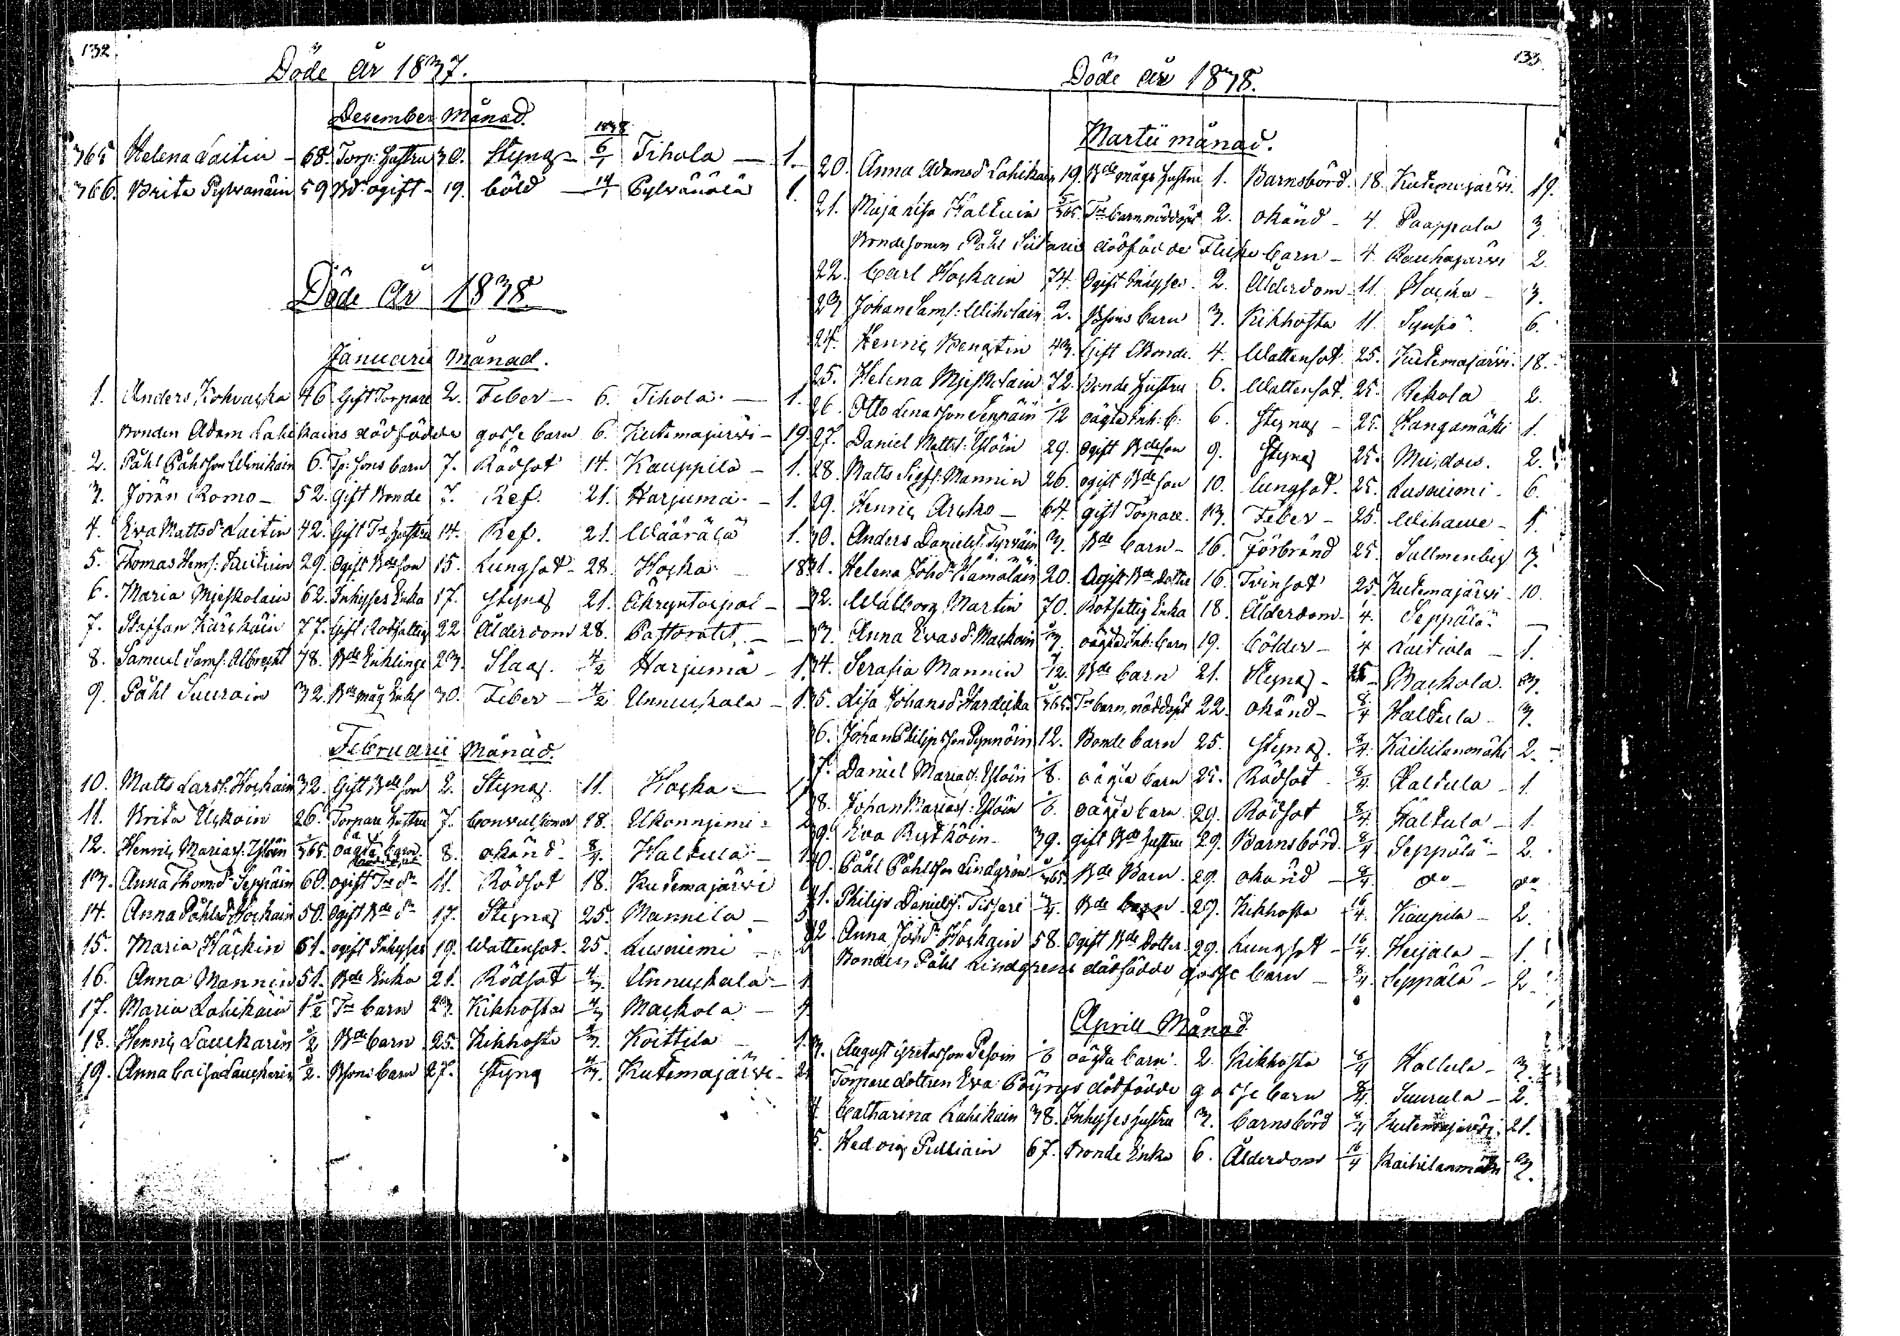 132
Döde År 1837.
December Månad.
1838
365 Helena Laitin - 68. Torp: Hustru 30. Styng - 6/1 Tihola - 1.
366. Brita Pylvänäin 59 Bd. ogift - 19. böld - 14/1 Pylvänälä 1.
Döde År 1838
Januarii Månad.
1. Anders Kohvacka 46 Gift Torpare 2. Feber - 6. Tihola. - 1.
Bonden Adam Lahikains dödfödde gosse barn 6. Kutemajärvi - 19.
2. Påhl Påhlsson Winikain 6. Tp: sons barn 7. Rödsot 14. Kauppila - 1.
3. Jöran Romo - 52. Gift Bonde 7. Ref. 21. Harjuma - 1.
4. Eva Mattsd. Laitin 42. Gift Tp Hustru 14. Ref. 21. Wäärälä 1.
5. Thomas Hens: 29. Ogift Bde son 15. Lungsot - 28. Hocka - 18
6. Maria Mjeskolain 62. Inhyses Enka 17. Styng 21. -
7. Staffan Kärckäin 77. Gift Rotfattig 22 Ålderdom 28. Pastoratet. -
8. Samuel Sams: Albrecht 78. Bde Enkling 23. Slag. 4/2 Harjuma - 1.
9. Påhl Suurain 32. Bde måg Enkl 30. Feber - 4/2 Unnuckala - 1
Februarii Månad.
10. Matts Larss. Hockain 32. Gift Bde son 2. Styng. 11. Hocka - 1
11. Brita Uckoin 26. Torpare Hustru 7. Convulsioner 18. Ukonnjemi - 2
12. Henric Marias. Ylöin 3/365 oägta barn 8. okänd. 8/4. Haltula - 1
13. Anna Thomsd. Seppäin 60. ogift 11. Rödsot 18. Kutemajärvi
14. Anna Påhlsd. Hockain 50. Ogift Bde dr 17. Styng 25. Mannila - 5
15. Maria Häckin 61. ogift Inhyses 19. Wattensot. 25. Lusniemi - 2
16. Anna Mannin 51. Bde Enka 21. Rödsot 4/3 Unnuckala - 1
17. Maria Lahikain 1 1/2 Tp barn 23. Kikhosta 4/3 Mackola - 4
18. Henric Lauckarin 1/2 Bde barn 25. Kikhosta 4/3. Koittila - 1.
19. Anna Caisa Lauckarin 1/2. Bsons barn 27. Styng 4/3. Kutemajärvi - 21
133.
Döde År 1838.
Martii månad.
20. Anna Adamsd. Lahikain 19. Bde mågs Hustru 1. Barnsbörd. 18. Kutemajärvi. 19.
21. Maja Lisa Haltuin 5/365. Tp barn nöddöpt 2. okänd - 4. Paappala 3.
Bondesonen Påhl Siitaris dödfödde Flicke barn - 4. Rauhajärvi 2.
22. Carl Hockain 74. Ogift Inhyses. 2. Ålderdom - 11. Hocka - 3.
23 Johan Sams: Wiholain 2. Bsons barn 3. Kikhosta 11. Synsiö. 6.
24. Henric Bengtin 43. Gift Bonde. 4. Wattensot. 25. Kutemajärvi. 18.
25. Helena Mjeskolain 72. Bonde Hustru 6. Wattensot. 25. Rekola 2.
26. Otto Lenasson Seppäin 1/12 oägta Inh. b. 6. Styng - 25. Kangamäki 1.
27. Daniel Matts: Ylöin 29. ogift Bde son 9. Styng 25. 2.
28. Matts Sigfs. Mannin 26. ogift Bde son 10. Lungsot. 25. Lusniemi. 6.
29. Henric Archo - 64. gift Torpare. 13. Feber - 25. Wihawe - 1.
30. Anders Daniels. Tyrväin 3. Bde barn - 16. Förbränd 25. Sallmenby 3.
31. Helena Johsd. Hämäläin 20. Ogift Bde dotter 16. Tvinsot 25. Kutemajärvi - 10.
32. Walborg Martin 70. Rotfattig Enka 18. Ålderdom - 4. Seppälä. -
33. Anna Evasd. Mackoin 3/3. oägta Inh: barn 19. bölder - 4 Laitiala - 1.
34. Serafia Mannin 1/12. Bde barn 21. Styng - 25 - Mackola. 3.
35. Lisa Johansd. Hardicka 5/365. Tp barn, nöddöpt 22. okänd - 8/4 Haltula. 3.
36. Johan Philipsson Pynnöin 12. Bonde barn 25. Styng. 8/4. Kaihilanmäki 2. -
37. Daniel Marias. Ylöin 8. oägta barn 25. Rödsot - 8/4 Haltula - 1.
38. Johan Marias: Ylöin 6. oägta barn 29. Rödsot 8/4 Haltula - 1.
39. Eva Rustköin. 39. gift Bde Hustru 29. Barnsbörd. 8/4 Seppälä - 2.
40. Påhl Påhlsson Lindgren 5/365 Bde Barn 29. okänd - 8/4. do - do
41. Philip Daniels. Tissari 3/4. Bde barn 29. Kikhosta 16/4. Kaupila - 2.
42 Anna Johsd. Hockain 58. Ogift Bde Dotter 29. Lungsot - 16/4 Heijala - 1.
Bonden Påhl Lindgrens dödfödde gosse barn - 8/4. Seppälä - 2.
Aprill Månad
3. August Gretasson Pesoin 1/6 oägta barn. 2. Kikhosta 8/4 Haltula - 3.
Torpare dottren Eva Pöyrys dödfödde gosse barn 8/4. Suurula - 2.
4 Catharina Lahikain 38. Inhyses hustru 3. barnsbörd 8/4 Kutemajärvi. 21.
5. Hedvig Pulliain 67. Bonde Enka 6. Ålderdom 16/4 Kaihilanmäki 3.